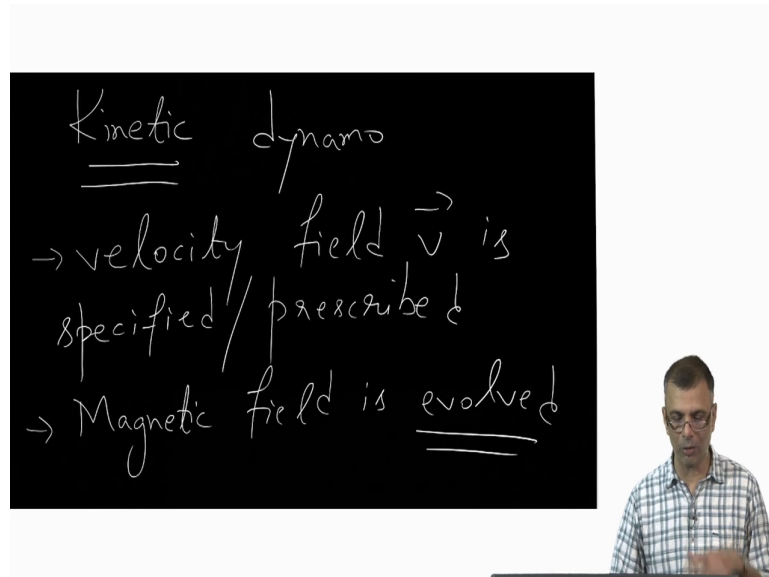 Kinetic dynamo
→ velocity field v⃗ is
specified/prescribed
→ Magnetic field is evolved